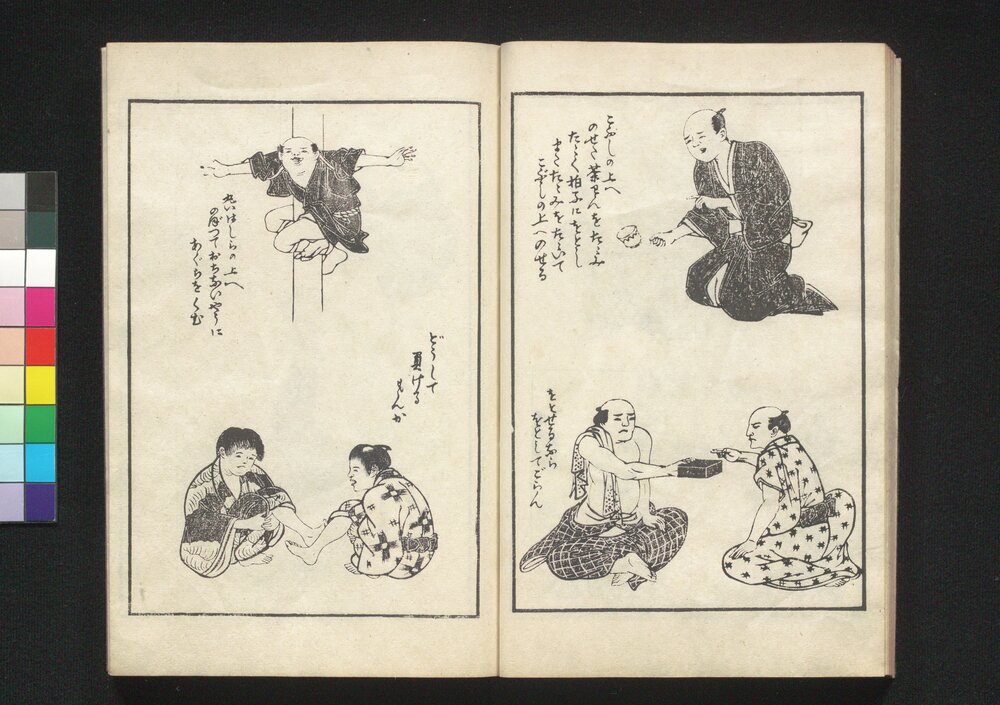 こぶしの上へ
のせた茶わんをたゝみ
たゝく拍子にをとし
またたゝみをたゝいて
こぶしの上へのせる
をとせるなら
をとしてごらん
丸いはしらの上へ
のぼつておちないやうに
あぐらをくむ
どうして
負ける
もんか